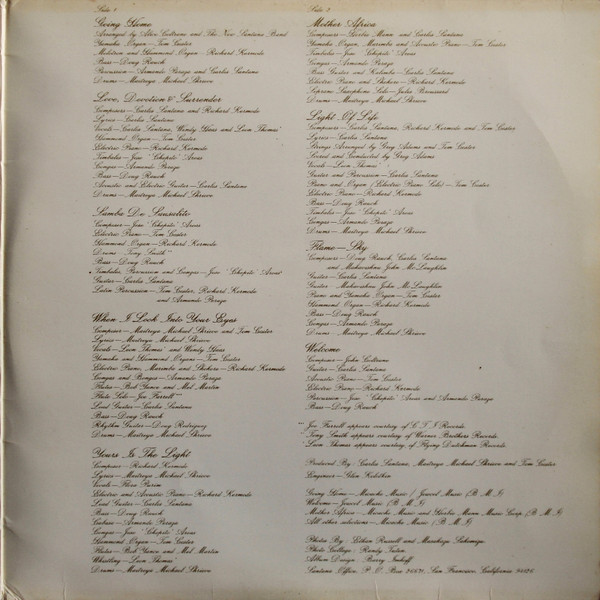 Side 1
Going Home
Arranged by Alice Coltrane and The New Santana Band
Yamaha Organ—Tom Coster
Mellotron and Hammond Organ—Richard Kermode
Bass—Doug Rauch
Percussion—Armando Peraza and Carlos Santana
Drums—Maitreya Michael Shrieve
Love, Devotion & Surrender
Composers—Carlos Santana and Richard Kermode
Lyrics—Carlos Santana
Vocals—Carlos Santana, Wendy Haas and Leon Thomas
Hammond Organ—Tom Coster
Electric Piano—Richard Kermode
Timbales—Jose "Chepito" Areas
Congas—Armando Peraza
Bass—Doug Rauch
Acoustic and Electric Guitar—Carlos Santana
Drums—Maitreya Michael Shrieve
Samba De Sausalito
Composer—Jose "Chepito" Areas
Electric Piano—Tom Coster
Hammond Organ—Richard Kermode
Drums—Tony Smith**
Bass—Doug Rauch
Timbales, Percussion and Congas—Jose "Chepito" Areas
Guitar—Carlos Santana
Latin Percussion—Tom Coster, Richard Kermode
and Armando Peraza
When I Look Into Your Eyes
Composer—Maitreya Michael Shrieve and Tom Coster
Lyrics—Maitreya Michael Shrieve
Vocals—Leon Thomas and Wendy Haas
Yamaha and Hammond Organs—Tom Coster
Electric Piano, Marimba and Shekere—Richard Kermode
Congas and Bongos—Armando Peraza
Flutes—Bob Yance and Mel Martin
Flute Solo—Joe Farrell
Lead Guitar—Carlos Santana
Bass—Doug Rauch
Rhythm Guitar—Doug Rodriguez
Drums—Maitreya Michael Shrieve
Yours Is The Light
Composer—Richard Kermode
Lyrics—Maitreya Michael Shrieve
Vocals—Flora Purim
Electric and Acoustic Piano—Richard Kermode
Lead Guitar—Carlos Santana
Bass—Doug Rauch
Cabasa—Armando Peraza
Congas—Jose "Chepito" Areas
Hammond Organ—Tom Coster
Flutes—Bob Yance and Mel Martin
Whistling—Leon Thomas
Drums—Maitreya Michael Shrieve
Side 2
Mother Africa
Composers—Herbie Mann and Carlos Santana
Yamaha Organ, Marimba and Acoustic Piano—Tom Coster
Timbales—Jose "Chepito" Areas
Congas—Armando Peraza
Bass Guitar and Kalimba—Carlos Santana
Electric Piano and Shekere—Richard Kermode
Soprano Saxophone Solo—Jules Broussard
Drums—Maitreya Michael Shrieve
Light Of Life
Composers—Carlos Santana, Richard Kermode and Tom Coster
Lyrics—Carlos Santana
Strings Arranged by Greg Adams and Tom Coster
Scored and Conducted by Greg Adams
Vocals—Leon Thomas
Guitar and Percussion—Carlos Santana
Piano and Organ (Electric Piano Solo)—Tom Coster
Electric Piano—Richard Kermode
Bass—Doug Rauch
Timbales—Jose "Chepito" Areas
Congas—Armando Peraza
Drums—Maitreya Michael Shrieve
Flame—Sky
Composers—Doug Rauch, Carlos Santana
and Mahavishnu John McLaughlin
Guitar—Carlos Santana
Guitar—Mahavishnu John McLaughlin
Piano and Yamaha Organ—Tom Coster
Hammond Organ—Richard Kermode
Bass—Doug Rauch
Congas—Armando Peraza
Drums—Maitreya Michael Shrieve
Welcome
Composer—John Coltrane
Guitar—Carlos Santana
Acoustic Piano—Tom Coster
Electric Piano—Richard Kermode
Percussion—Jose "Chepito" Areas and Armando Peraza
Bass—Doug Rauch
***Joe Farrell appears courtesy of C T I Records.
**Tony Smith appears courtesy of Warner Brothers Records.
*Leon Thomas appears courtesy of Flying Dutchman Records.
Produced By—Carlos Santana, Maitreya Michael Shrieve and Tom Coster
Engineer—Glen Kolotkin
Going Home—Mirocha Music / Jowcol Music (B. M. I.)
Welcome—Jowcol Music (B. M. I.)
Mother Africa—Mirocha Music and Herbie Mann Music Corp. (B. M. I.)
All other selections—Mirocha Music (B. M. I.)
Photos By—Ethan Russell and Masahiro Sakamiya
Photo Collage—Randy Tuten
Album Design—Barry Imhoff
Santana Office, P. O. Box 26671, San Francisco, California 94126